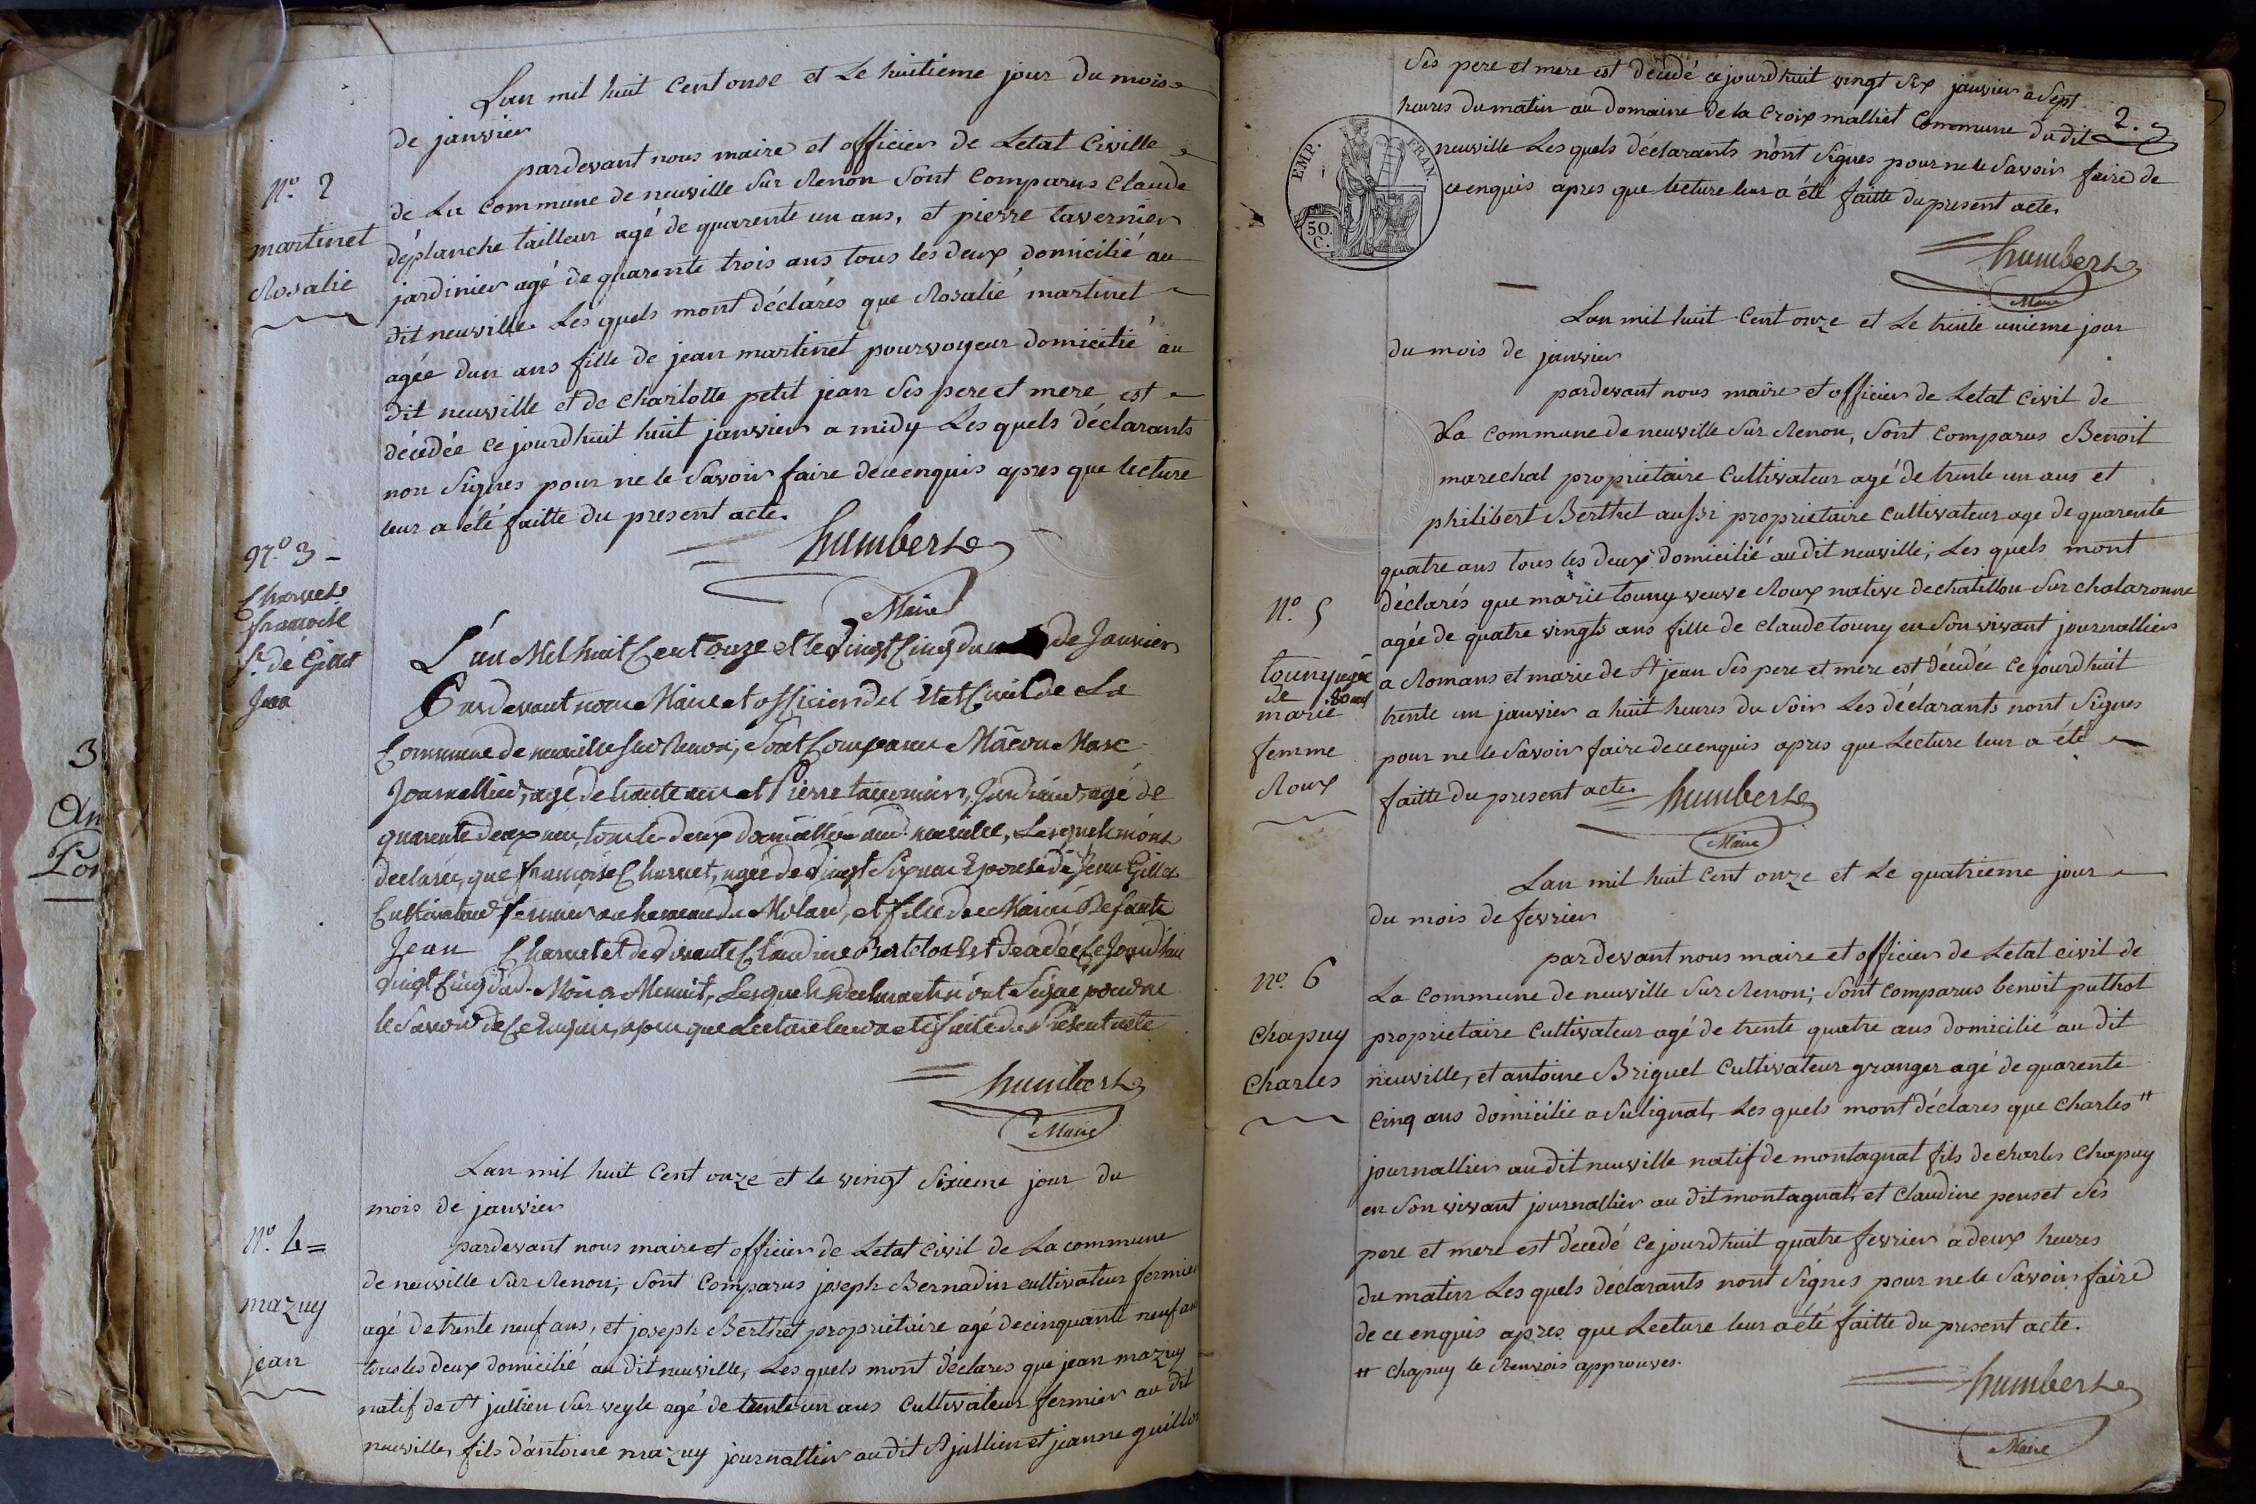 Lan mil huit cent onse et Le huitieme jour du mois
de janvier
pardevant nous maire et officier de Letat Civille
N.º 2
de La Commune de neuville Sur Renon Sont Comparus Claude
martinet
déplanche tailleur agé de quarente un ans, et pierre tavernier
Rosalie
jardinier agé de quarente trois ans tous les deux domicilié au
dit neuville Les quels mont déclarés que Rosalie martinet
agée dun ans fille de jean martinet pourvoyeur domicilié au
dit neuville et de charlotte petit jean Ses pere et mere est
décédée ce jourdhuit huit janvier a midy Les quels déclarants
non Signes pour ne le Savoir faire de ce enquis apres que lecture
leur a été faitte du present acte.
humbert
Maire
N.º 3
Charvet
francoise
fe. de Gillet
Jean
L'an Mil huit Cent onze et le Vingt Cinq du de Janvier
Pardevant nous Maire et officier de l'Etat Civil de La
Commune de neuville sur Renon, Sont Comparu Mâcon Marc
Journallier, agé de trente ans et Pierre tavernier, Jardinier, agé de
quarente deux ans, tous les deux domicillié aud. neuville, Lesquels m'ont
déclaré, que françoise Charvet, agée de Vingt Six ans Epouse de Jean Gillet
Cultivateur fermier au hameau du Molard, et fille de Defante
Jean Charvet et de vivante Claudine Berthelon Est Decedée Ce Jourd'hui
vingt Cinq dud. Mois a Minuit, Lesquels Declarants n'ont Signé pour ne
le Savoir de Ce Enquis, apres que Lecture leur a été faite du Présent acte
humbert
Maire
Lan mil huit Cent onze et le vingt Sixieme jour du
mois de janvier
N.º 4
pardevant nous maire et officier de Letat Civil de La commune
de neuville Sur Renon; Sont Comparus joseph Bernadin cultivateur fermier
mazuy
agé de trente neuf ans, et joseph Berthet propriétaire agé de cinquante neuf ans
jean
tous les deux domicilié au dit neuville, Les quels mont déclares que jean mazuy
natif de St jullien Sur veyle agé de trente un ans Cultivateur fermier au dit
neuville, fils d'antoine mazuy journallier au dit St jullien et jeanne guillot
Ses pere et mere est décédé ce jourdhuit vingt Six janvier a Sept
heures du matin au domaine de la Croix malliet Commune du dit
2.
neuville Les quels déclarants n'ont Signes pour ne le Savoir faire de
ce enquis apres que lecture leur a été faitte du present acte.
EMP. FRAN.
50. C.
humbert
Maire
Lan mil huit Cent onze et Le trente unieme jour
du mois de janvier
pardevant nous maire et officier de Letat Civil de
La Commune de neuville Sur Renon, Sont Comparus Benoit
marechal propriétaire Cultivateur agé de trente un ans et
philibert Berthet aussi propriétaire Cultivateur age de quarente
quatre ans tous les deux domicilié au dit neuville; Les quels mont
N.º 5
déclarés que marie touny veuve Roux native de chatillon Sur chalaronne
agée de quatre vingts ans fille de claude touny en Son vivant journallier
touny agée
de 80 ans
a Romans et marie de St jean Ses pere et mere est décédée ce jourdhuit
marie
trente un janvier a huit heures du Soir Les déclarants nont Signes
femme
pour ne le Savoir faire de ce enquis apres que Lecture leur a été
Roux
faitte du present acte.
humbert
Maire
Lan mil huit Cent onze et Le quatrieme jour
du mois de fevrier
pardevant nous maire et officier de Letat civil de
N.º 6
La commune de neuville Sur Renon; Sont comparus benoit puthot
chapuy
propriétaire Cultivateur agé de trente quatre ans domicilié au dit
Charles
neuville, et antoine Briguel Cultivateur granger agé de quarente
Cinq ans domicilie a Sulignat, Les quels mont déclares que Charles #
journallier au dit neuville natif de montagnat fils de charles Chapuy
en Son vivant journallier au dit montagnat et Claudine penset Ses
pere et mere est décédé ce jourdhuit quatre fevrier a deux heures
du matin Les quels déclarants nont Signes pour ne le Savoir faire
de ce enquis apres que Lecture leur a été faitte du present acte.
# Chapuy le Renvois approuves.
humbert
Maire